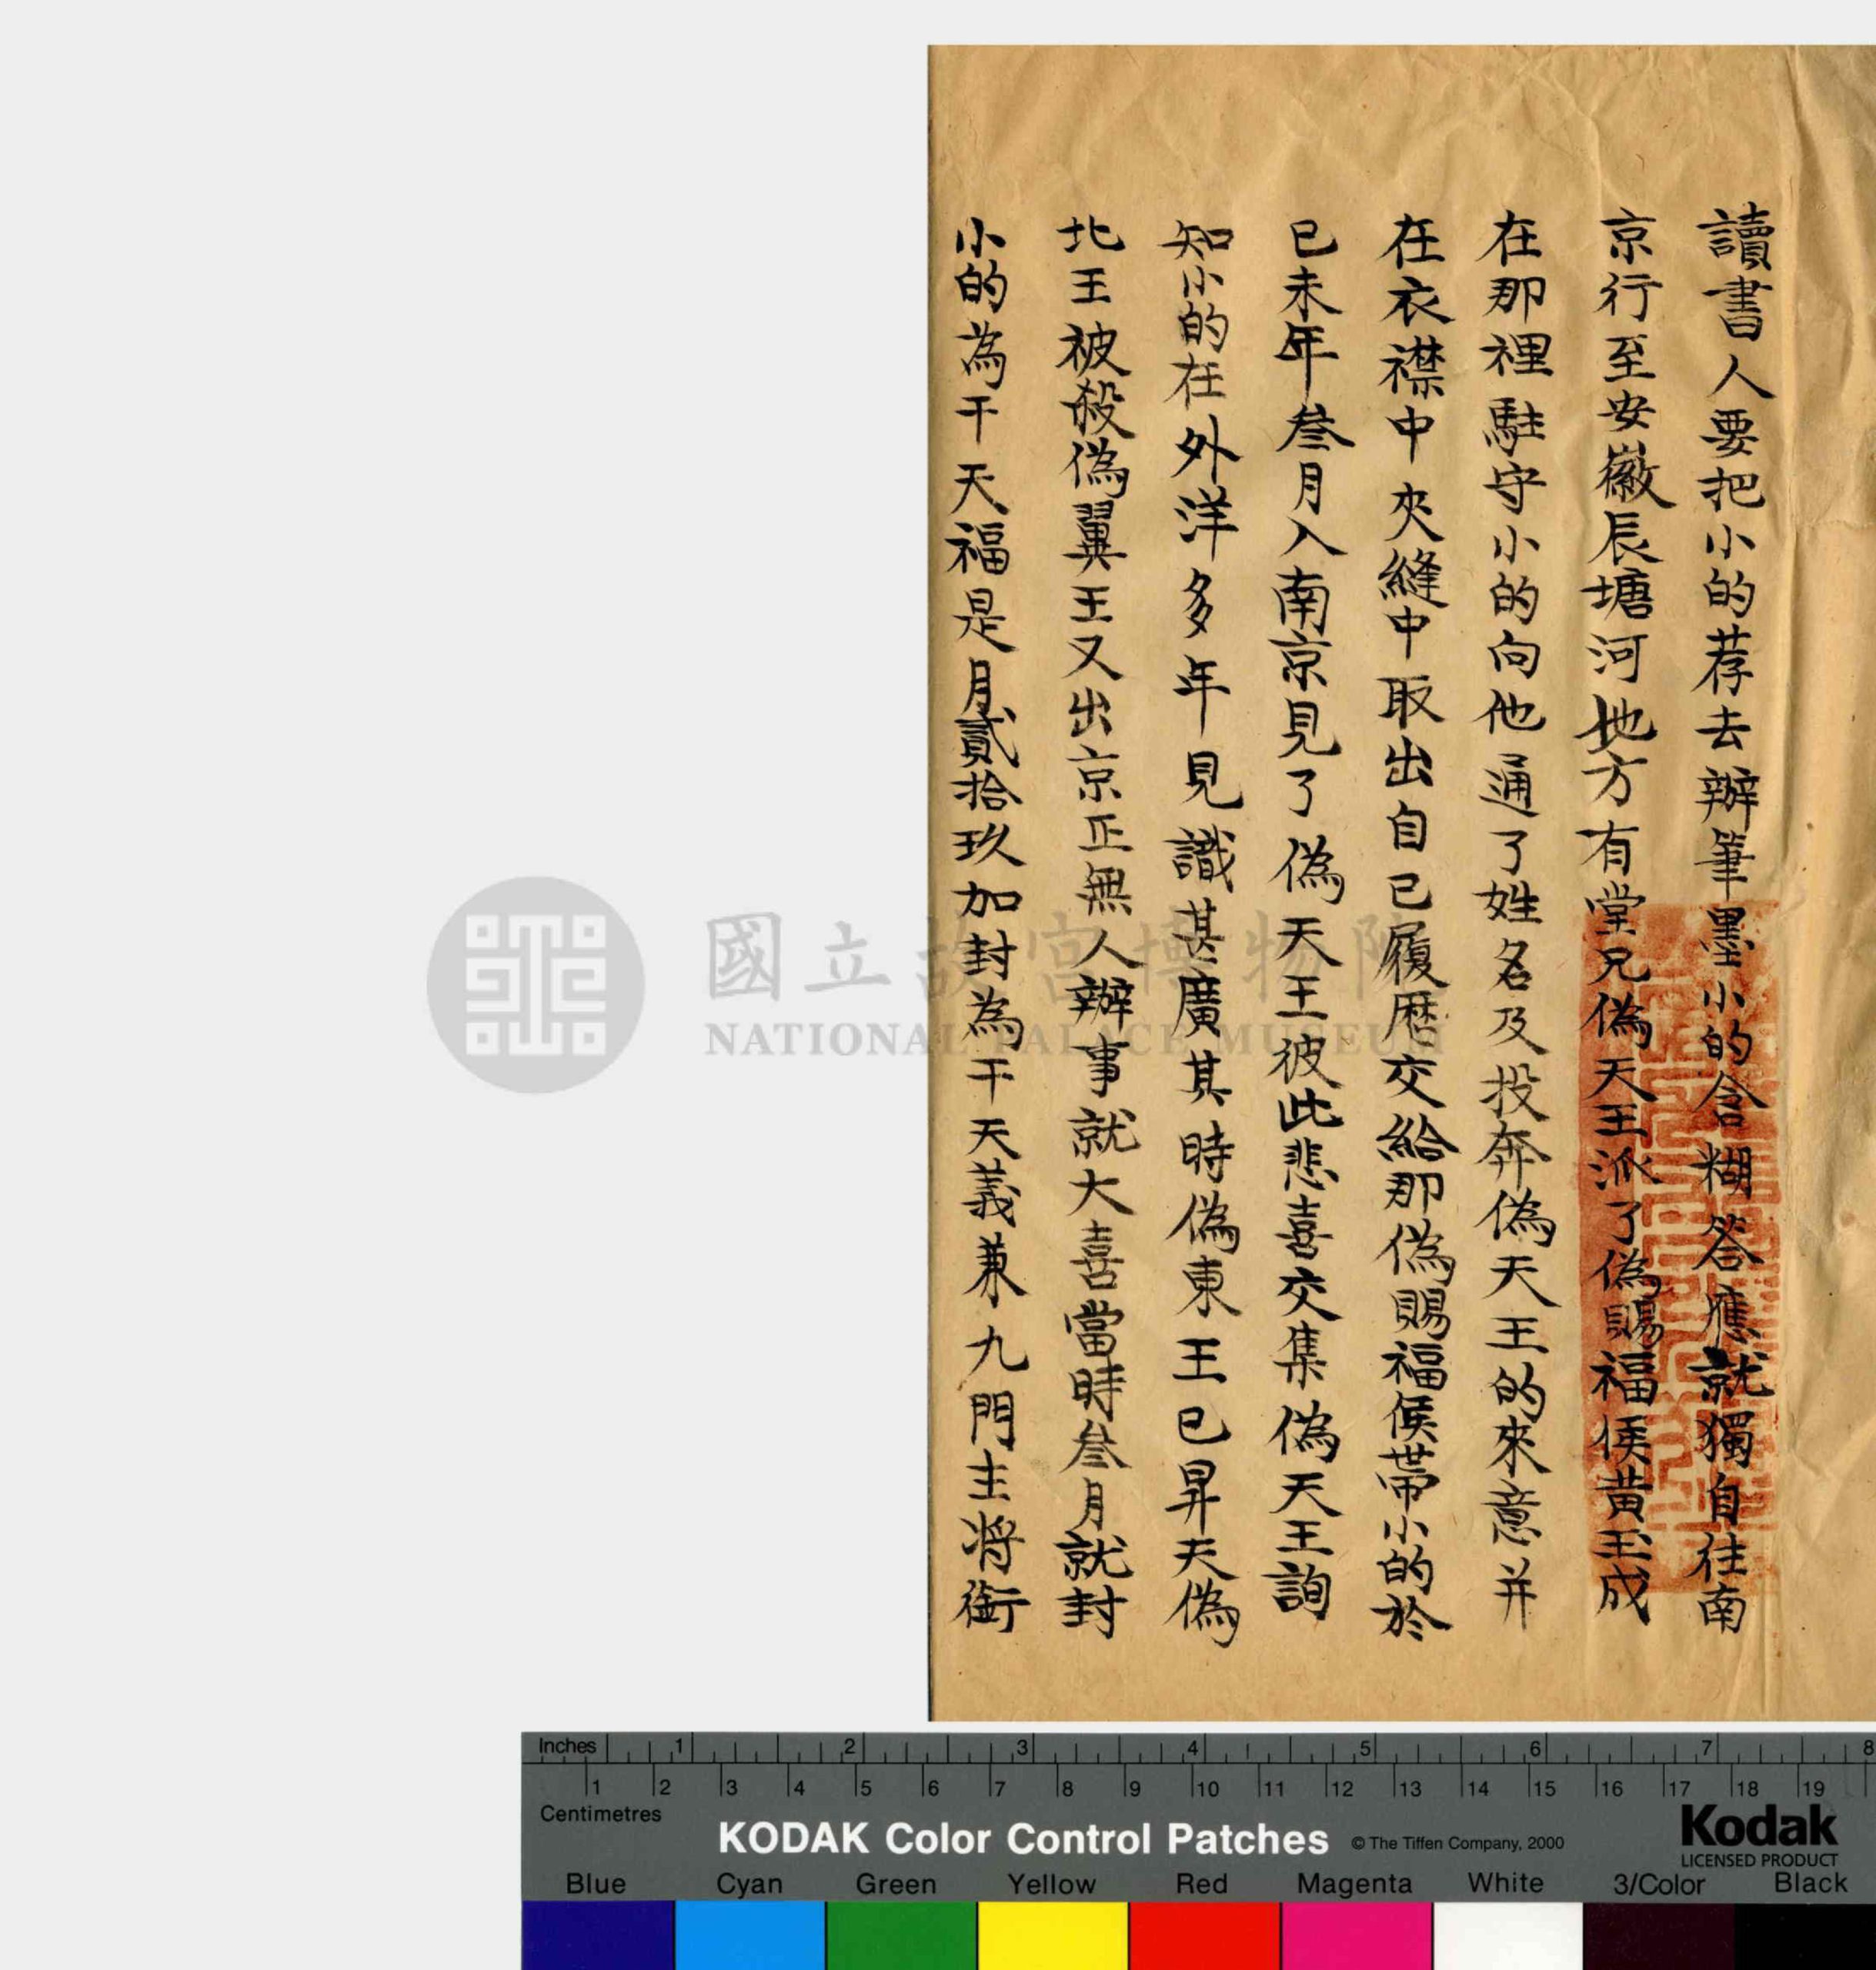 讀書人要把小的荐去辦筆墨小的含糊答應就獨自往南
京行至安徽辰塘河地方有堂兄偽天王派了偽賜福侯黃玉成
在那裡駐守小的向他通了姓名及投奔偽天王的來意并
在衣襟中夾縫中取出自己履歷交給那偽賜福侯帶小的於
己未年叁月入南京見了偽天王彼此悲喜交集偽天王詢
知小的在外洋多年見識甚廣其時偽東王已昇天偽
北王被殺偽翼王又出京正無人辦事就大喜當時叁月就封
小的為干天福是月貳拾玖加封為干天義兼九門主将銜
國立故宮博物院
NATIONAL PALACE MUSEUM
Inches 1 2 3 4 5 6 7 8
1 2 3 4 5 6 7 8 9 10 11 12 13 14 15 16 17 18 19
Centimetres
KODAK Color Control Patches © The Tiffen Company, 2000
Kodak
LICENSED PRODUCT
Blue Cyan Green Yellow Red Magenta White 3/Color Black